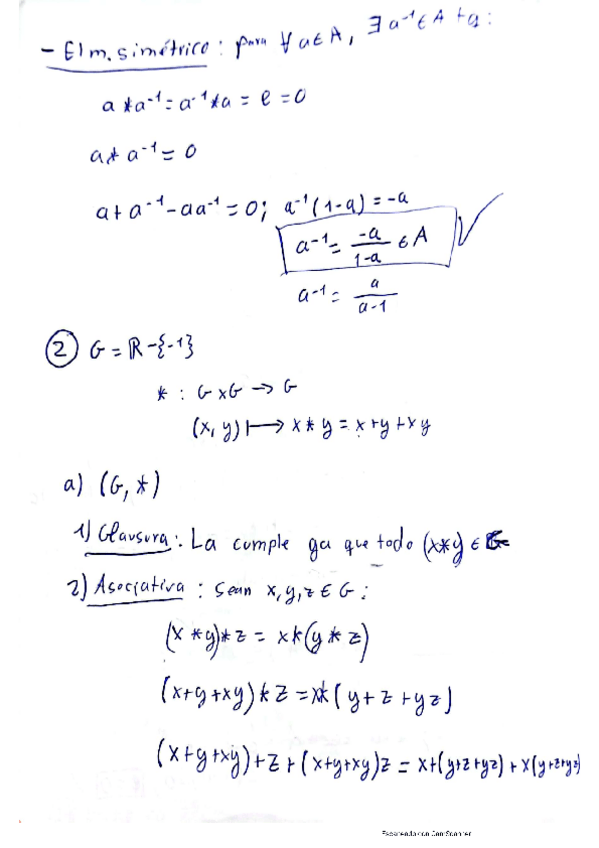 - Elm. simétrico: para ∀a∈A, ∃a⁻¹∈A tq:
a*a⁻¹=a⁻¹*a = e = 0
a*a⁻¹= 0
a+a⁻¹-aa⁻¹=0; a⁻¹(1-a)=-a
a⁻¹= -a/(1-a) ∈A ✓
a⁻¹= a/(a-1)
② G = ℝ-{-1}
* : G×G → G
(x, y) ↦ x*y = x+y+xy
a) (G, *)
1) Clausura: La cumple ya que todo (x*y) ∈ G
2) Asociativa: Sean x,y,z ∈ G:
(x*y)*z = x*(y*z)
(x+y+xy)*z = x*(y+z+yz)
(x+y+xy)+z+(x+y+xy)z = x+(y+z+yz)+x(y+z+yz)
Escaneado con CamScanner